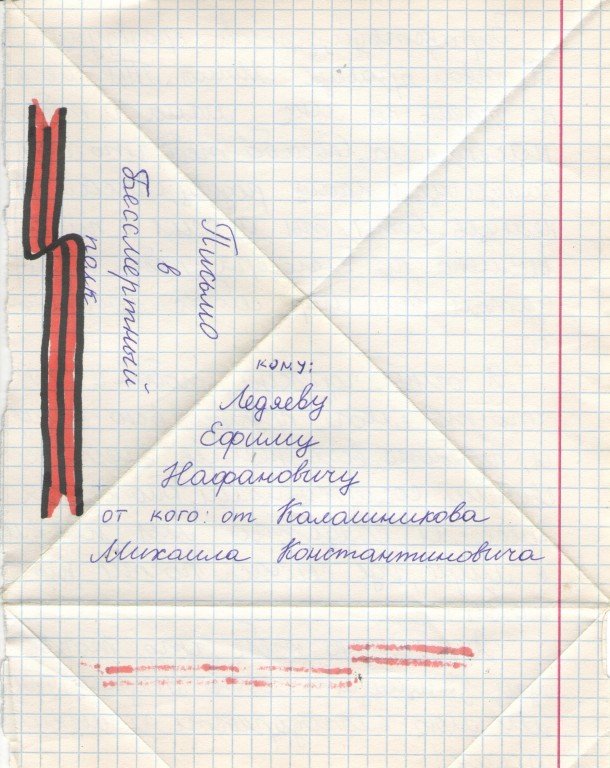 Письмо
в
Бессмертный
полк
кому:
Ледяеву
Ефиму
Нафановичу
от кого: от Калашникова
Михаила Константиновича